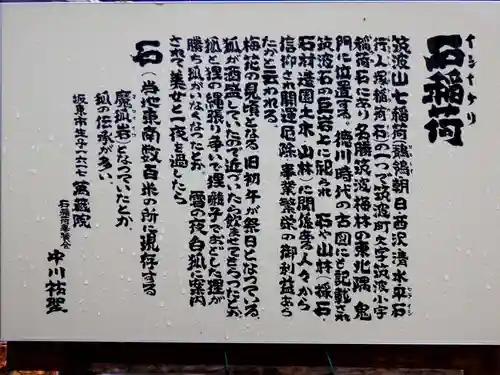 石稲荷
イシイナリ
筑波山七稲荷鵜鶴朝日西沢清水平石
行人塚稲荷石の一つで筑波町大字筑波小字
稲荷石に有り名勝筑波梅林の東北隅 鬼
門に位置する。徳川時代の古図にも記載され
筑波石の巨岩上に祀られ 石や山林、採石、
石材造園土木、山林)に関係ある人々から
信仰され開運厄除、事業繁栄の御利益あら
たかと云われる。
梅花の見頃となる旧初午が祭日となっている。
狐が酒盛していたので近づいたら飲ませてもらったとか、
狐と狸の縄張り争いで狸囃子でおどした狸が
勝ち狐がいなくなったとか、 霧の夜白狐に案内
されて美女と一夜を過したら
石(当地東南数百米の所に現存する
魔狐岩)となっていたとか、
狐の伝承が多い。
坂東市生子一六二七 萬蔵院
石稲荷奉賛会
中川祐聖